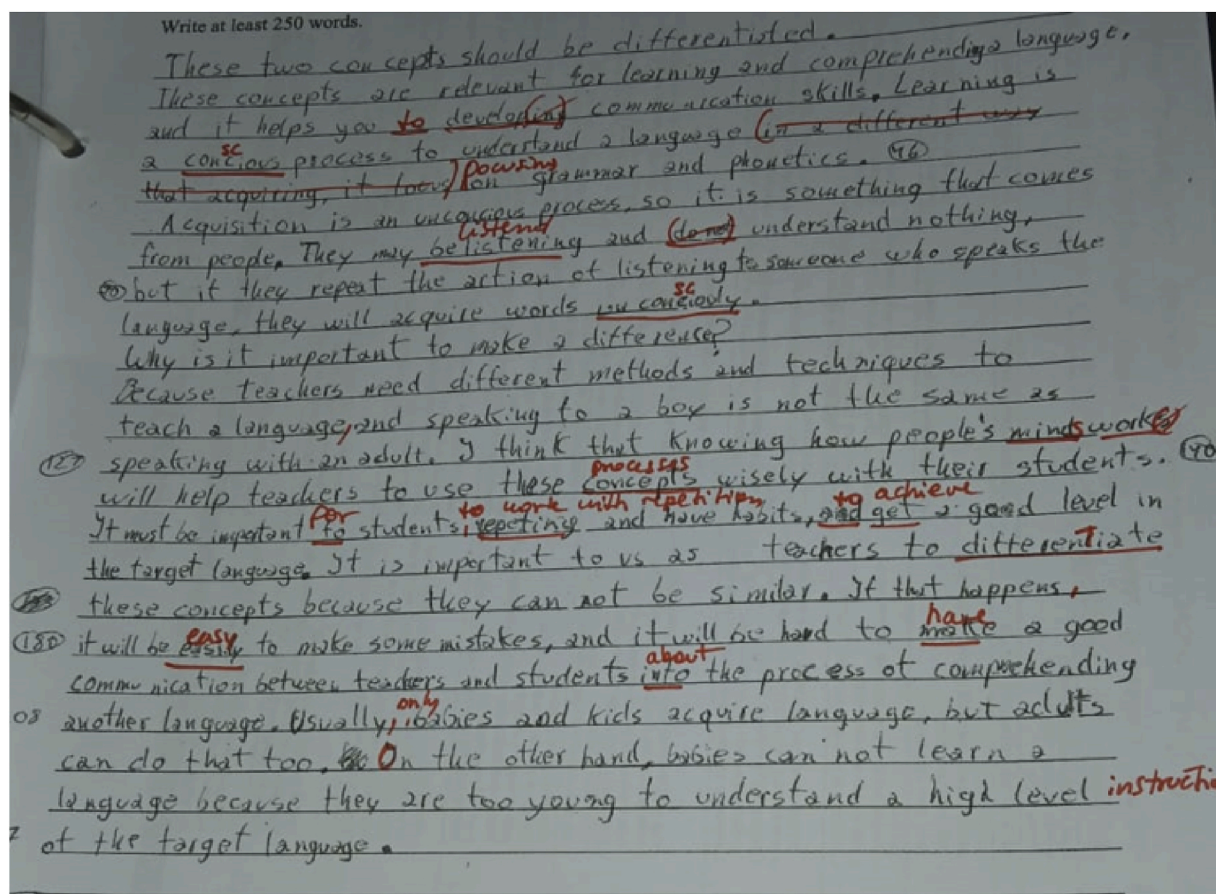 Write at least 250 words.
These two concepts should be differentisted.
These concepts are relevant for learning and comprehending a language,
and it helps you to develop(ing) communication skills. Learning is
sc
a concious process to understand a language (in a different way
that acquiring, it focus) focusing on grammar and phonetics. 46
Acquisition is an unconcious process, so it is something that comes
listend
from people. They may be listening and (do not) understand nothing,
but if they repeat the action of listening to someone who speaks the
sc
language, they will acquire words unconciously.
Why is it important to make a difference?
Because teachers need different methods and techniques to
teach a language, and speaking to a boy is not the same as
127 speaking with an adult. I think that knowing how people's minds works
processes
will help teachers to use these concepts wisely with their students. 40
for to work with repetition to achieve
It must be important to students, repeting and have habits, and get a good level in
the target language. It is important to us as teachers to differenTiate
these concepts because they can not be similar. If that happens,
easy have
180 it will be easily to make some mistakes, and it will be hard to make a good
about
communication between teachers and students into the process of comprehending
only
08 another language. Usually, babies and kids acquire language, but adults
can do that too. On the other hand, babies can not learn a
language because they are too young to understand a high level instructi
of the target language.